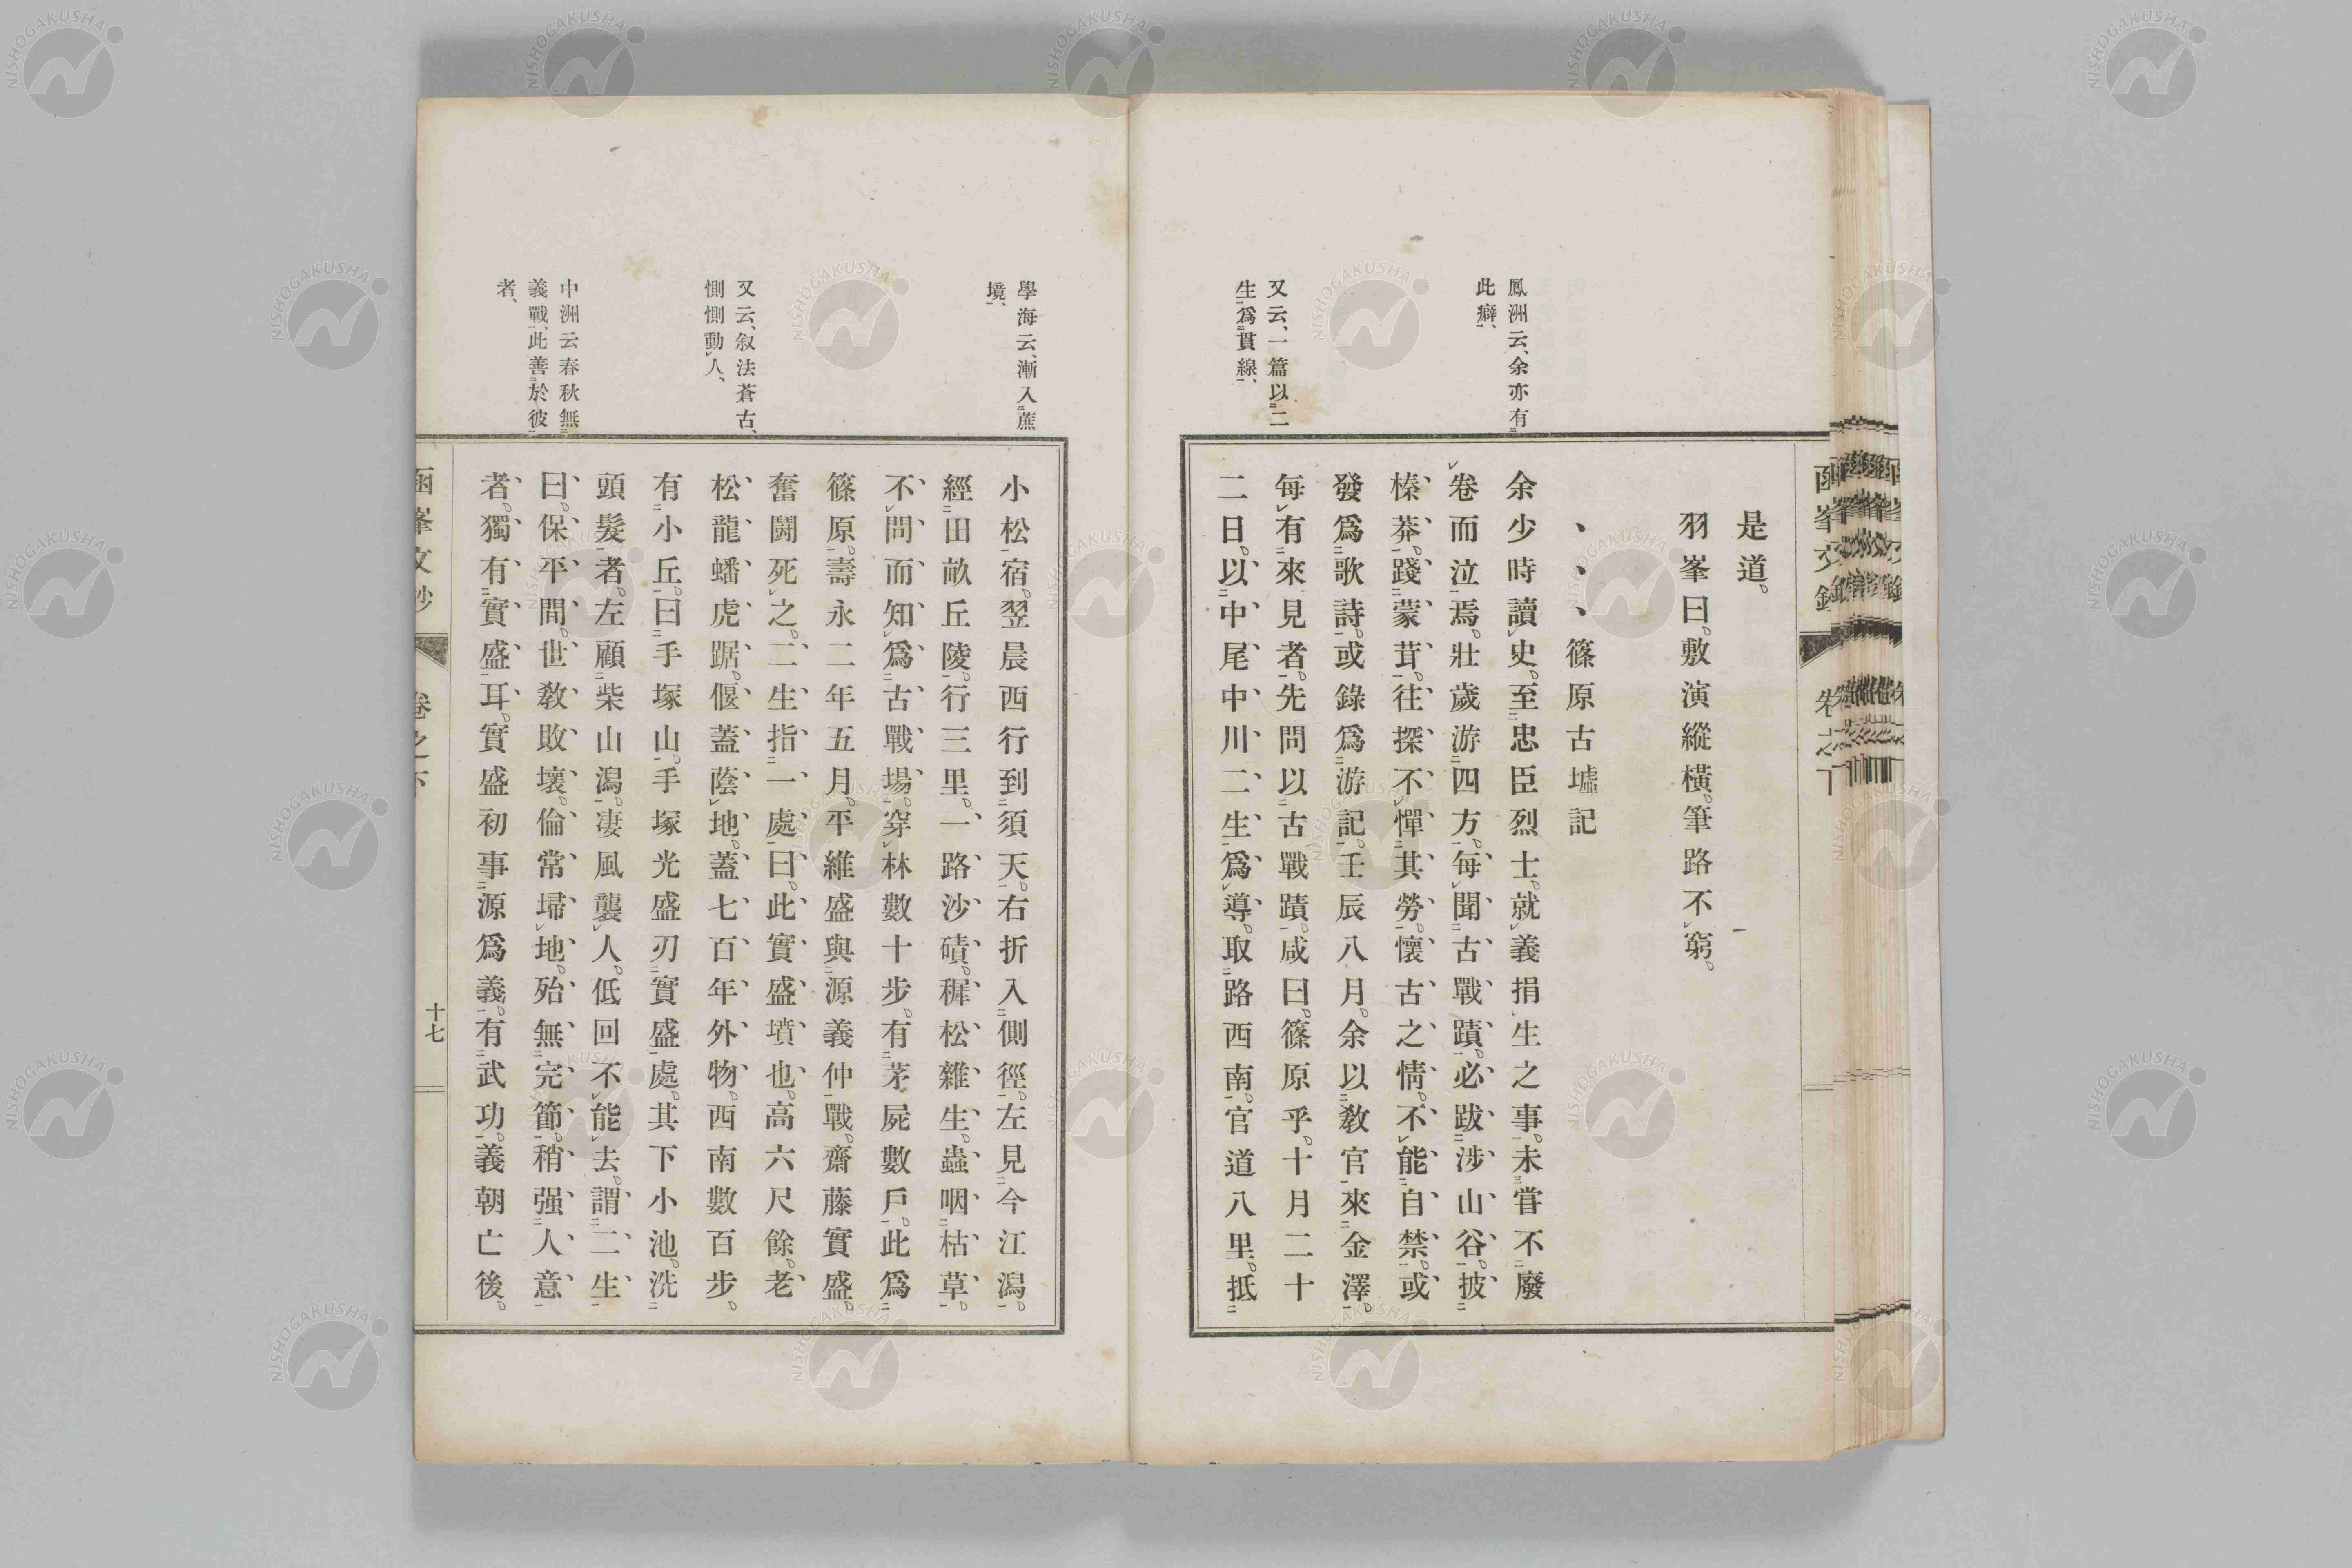 是道。
羽峯曰。敷演縱橫。筆路不窮。
、、、篠原古墟記
余少時讀史。至忠臣烈士。就義捐生之事。未甞不廢
卷而泣焉。壯歲游四方。每聞古戰蹟。必跋涉山谷。披
榛莽。踐蒙茸。往探不憚其勞。懷古之情。不能自禁。或
發爲歌詩。或錄爲游記。壬辰八月。余以教官來金澤。
每有來見者。先問以古戰蹟。咸曰。篠原乎。十月二十
二日。以中尾中川二生爲導。取路西南。官道八里。抵
鳳洲云、余亦有
此癖、
又云、一篇以二
生爲貫線、
小松宿。翌晨西行到須天。右折入側徑。左見今江潟。
經田畝丘陵。行三里。一路沙磧。穉松雜生。蟲咽枯草。
不問而知爲古戰場。穿林數十步。有茅屍數戶。此爲
篠原。壽永二年五月。平維盛與源義仲戰。齋藤實盛
奮鬪死之。二生指一處曰。此實盛墳也。高六尺餘。老
松龍蟠虎踞。偃蓋蔭地。蓋七百年外物。西南數百步。
有小丘。曰手塚山。手塚光盛刃實盛處。其下小池。洗
頭髮者。左顧柴山潟。凄風襲人。低回不能去。謂二生
曰。保平間。世教敗壞。倫常埽地。殆無完節。稍强人意
者。獨有實盛耳。實盛初事源爲義。有武功。義朝亡後。
學海云、漸入蔗
境、
又云、叙法蒼古、
惻惻動人、
中洲云春秋無
義戰、此善於彼
者、
十七